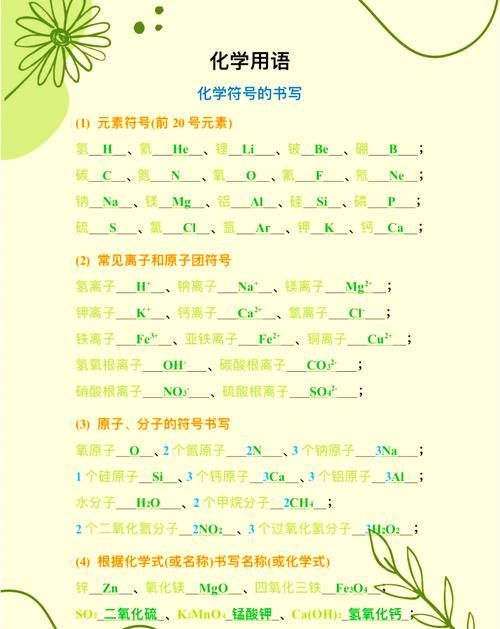 化学用语
化学符号的书写
(1) 元素符号(前 20 号元素)
氢__H__、氦__He__、锂__Li__、铍__Be__、硼__B__；
碳__C__、氮__N__、氧__O__、氟__F__、氖__Ne__；
钠__Na__、镁__Mg__、铝__Al__、硅__Si__、磷__P__；
硫__S__、氯__Cl__、氩__Ar__、钾__K__、钙__Ca__；
(2) 常见离子和原子团符号
氢离子___H⁺__、钠离子___Na⁺__、镁离子___Mg²⁺__；
钾离子___K⁺__、钙离子___Ca²⁺__、氯离子___Cl⁻__；
铁离子___Fe³⁺__、亚铁离子___Fe²⁺__、铜离子___Cu²⁺__；
氢氧根离子___OH⁻__、碳酸根离子___CO₃²⁻__；
硝酸根离子___NO₃⁻__、硫酸根离子___SO₄²⁻__；
(3) 原子、分子的符号书写
氧原子__O__、2 个氮原子___2N___、3 个钠原子___3Na___；
1 个硅原子__Si__、3 个钙原子__3Ca__、3 个铝原子__3Al__；
水分子___H₂O___、2 个甲烷分子__2CH₄__；
2 个二氧化氮分子__2NO₂__、3 个过氧化氢分子__3H₂O₂__；
(4) 根据化学式(或名称)书写名称(或化学式)
锌__Zn__、氧化镁__MgO__、四氧化三铁__Fe₃O₄__；
SO₂_二氧化硫_、K₂MnO₄_锰酸钾_、Ca(OH)₂_氢氧化钙_；